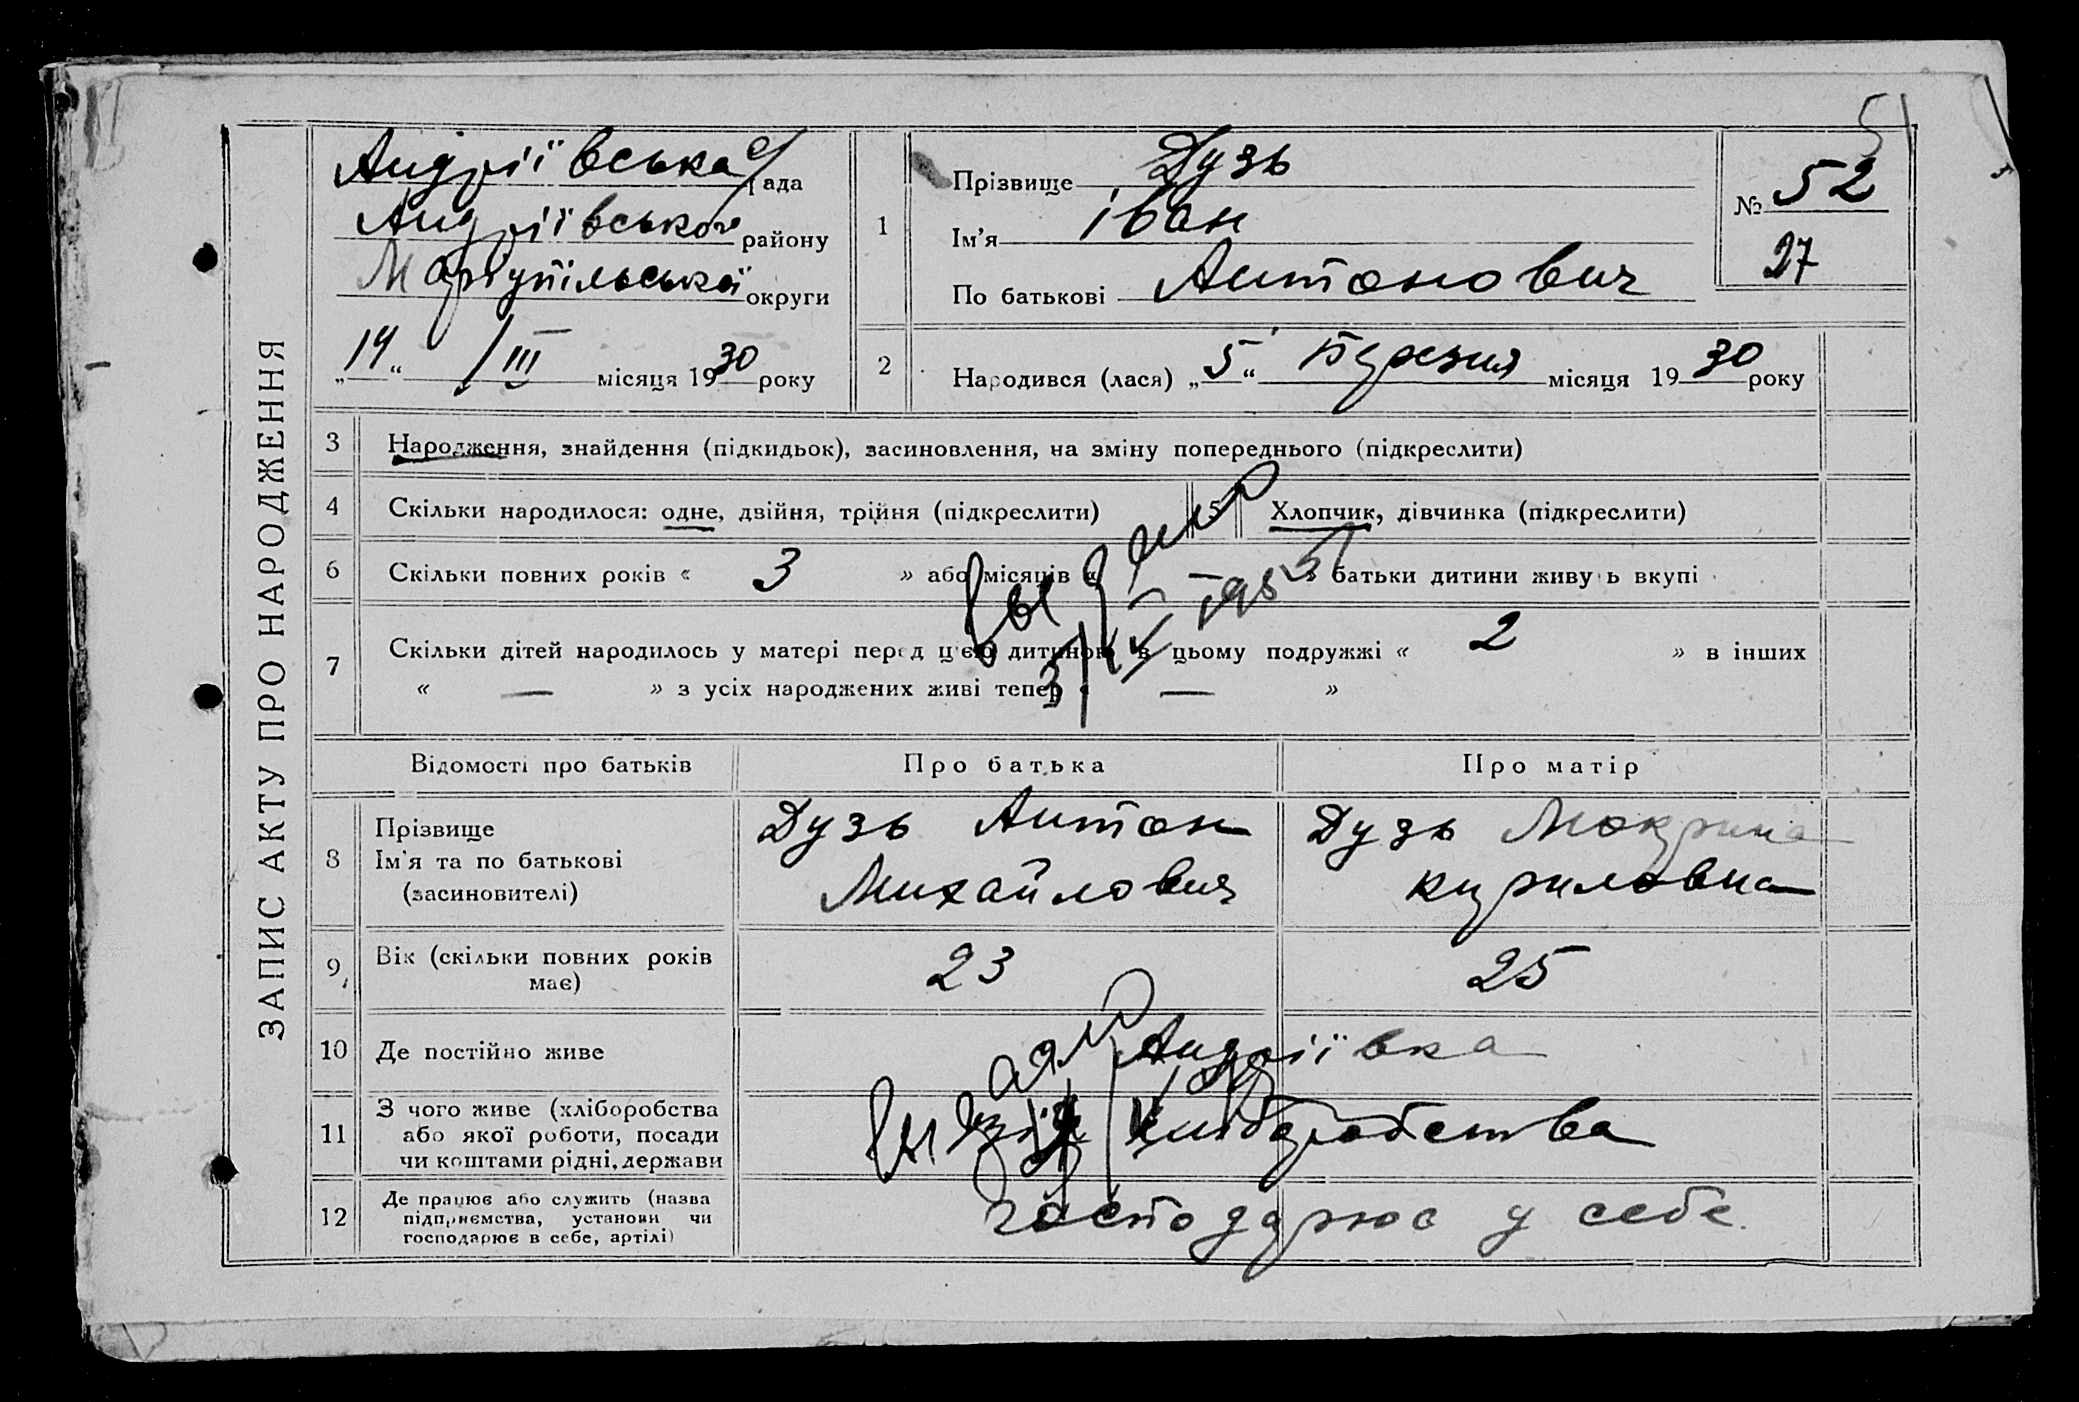 ЗАПИС АКТУ ПРО НАРОДЖЕННЯ
51
Андріївська с/рада
Андріївсько району
Маріупільської округи
„14“ III місяця 1930 року
1
Прізвище Дузь
Ім'я Іван
По батькові Антонович
№ 52
27
2
Народився (лася) „5“ Березня місяця 1930 року
3 Народження, знайдення (підкидьок), засиновлення, на зміну попереднього (підкреслити)
4 Скільки народилося: одне, двійня, трійня (підкреслити) 5 Хлопчик, дівчинка (підкреслити)
6 Скільки повних років « 3 » або місяців « батьки дитини живуть вкупі
7 Скільки дітей народилось у матері перед цією дитиною в цьому подружжі « 2 » в інших
« — » з усіх народжених живі тепер « — »
3/IV
Відомості про батьків Про батька Про матір
8
Прізвище
Ім'я та по батькові
(засиновителі)
Дузь Антон
Михайлович
Дузь Мокрина
Кириловна
9 Вік (скільки повних років
має)
23 25
10 Де постійно живе Андріївка
11 З чого живе (хліборобства
або якої роботи, посади
чи коштами рідні, держави
хліборобства
12 Де працює або служить (назва
підприємства, установи чи
господарює в себе, артілі)
господарює у себе.